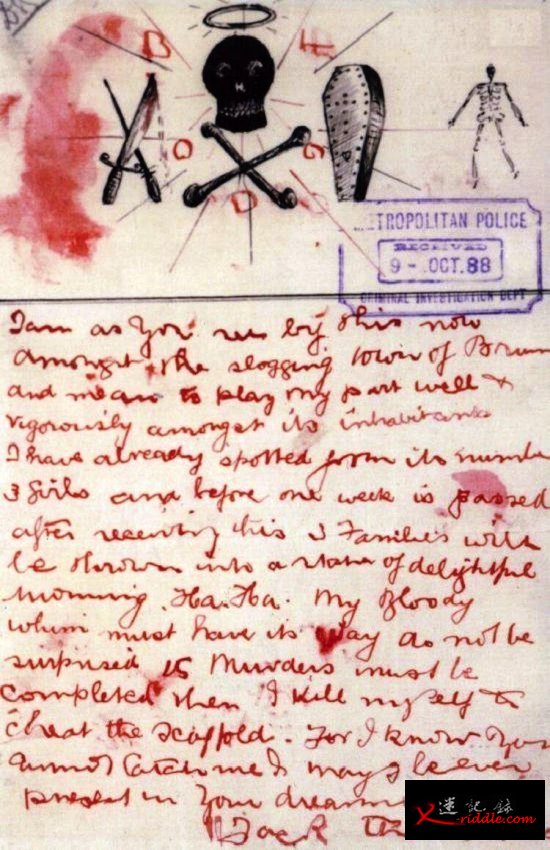 B E
O G
D
METROPOLITAN POLICE
RECEIVED
9 - OCT. 88
CRIMINAL INVESTIGATION DEPT
I am as you see by this now
amongst the slogging town of Brum
and mean to play my part well &
vigorously amongst its inhabitants
I have already spotted from its number
3 Girls and before one week is passed
after receiving this 3 Families will
be thrown into a state of delightful
mourning. Ha. Ha. My Bloody
whim must have its way do not be
surprised 15 Murders must be
completed then I kill myself to
cheat the scaffold. For I know you
cannot catch me & may I be ever
present in your dreams
Jack
迷記錄
x-riddle.com